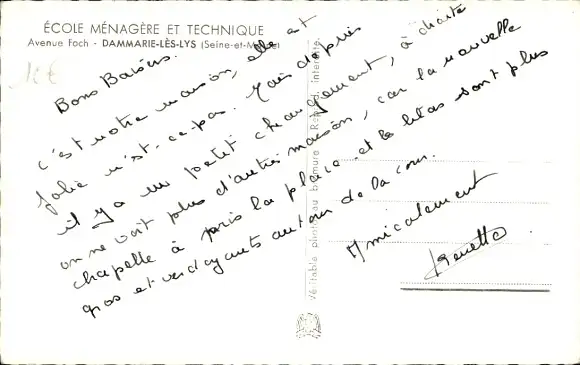 ÉCOLE MÉNAGÈRE ET TECHNIQUE
Avenue Foch - DAMMARIE-LÈS-LYS (Seine-et-Marne)
1€
Bons Baisers.
c'est notre maison, elle est
jolie n'est-ce-pas. Mais depuis
il y a un petit changement, à droite
on ne voit plus d'autres maison, car la nouvelle
chapelle à pris la place et les lilas sont plus
gros et verdoyants autour de la cour.
Amicalement
Véritable photo au bromure - Reprod. interdite.